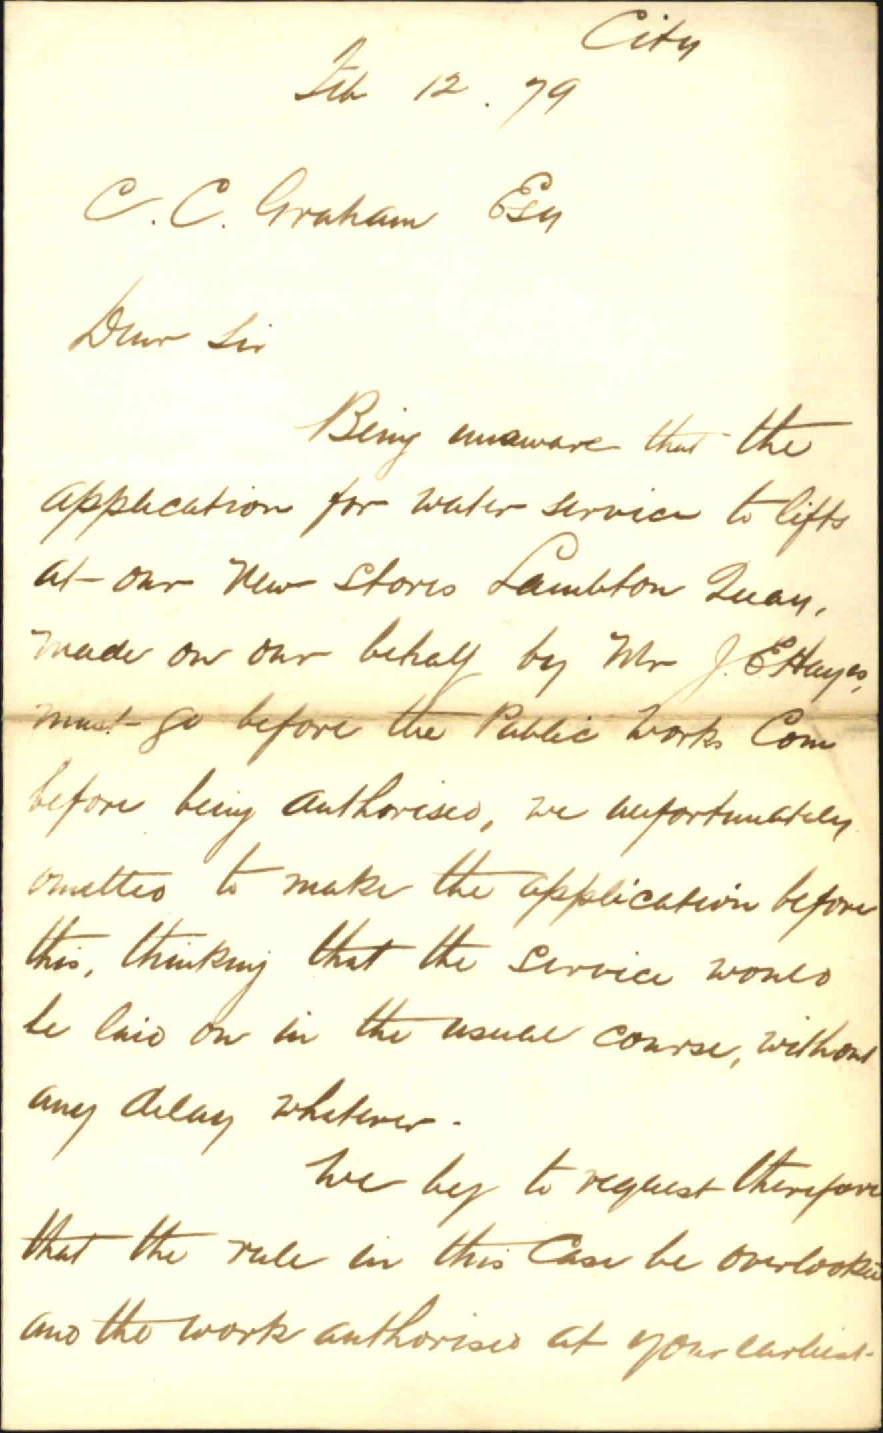 City
Feb 12. 79
C. C. Graham Esq
Dear Sir
Being unaware that the
application for water service to lifts
at our New Stores Lambton Quay,
made on our behalf by Mr J. E Hayes,
must go before the Public Works Com
before being authorised, we unfortunately
omitted to make the application before
this, thinking that the service would
be laid on in the usual course, without
any delay whatever.
We beg to request therefore
that the rule in this Case be overlooked
and the work authorised at your earliest